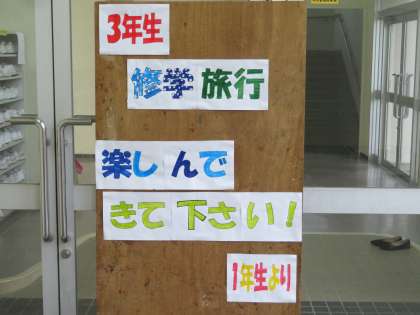 3年生
修学旅行
楽しんで
きて下さい!
1年生より